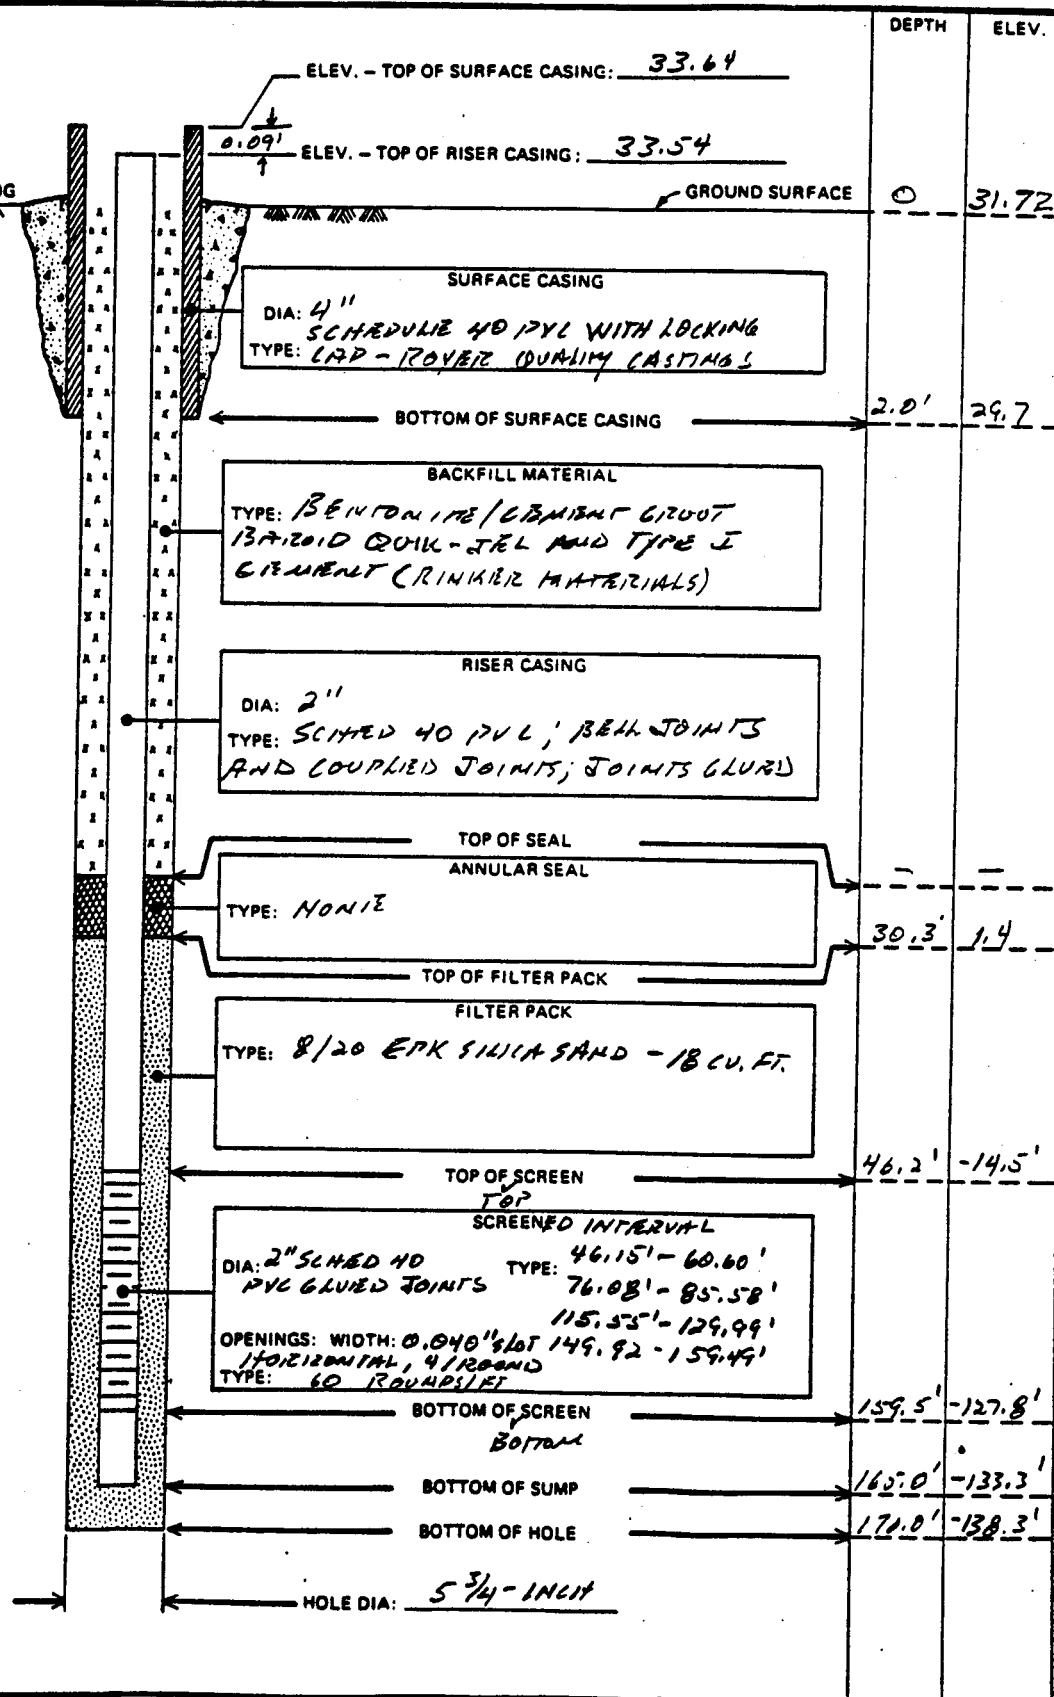 DEPTH ELEV.
ELEV. – TOP OF SURFACE CASING: 33.64
0.09' ELEV. – TOP OF RISER CASING: 33.54
OG
GROUND SURFACE 0 31.72
SURFACE CASING
DIA: 4"
SCHEDULE 40 PVC WITH LOCKING
TYPE: CAP - ROYER QUALITY CASTINGS
BOTTOM OF SURFACE CASING 2.0' 29.7
BACKFILL MATERIAL
TYPE: BENTONITE/CEMENT GROUT
BAROID QUIK-JEL AND TYPE I
CEMENT (RINKER MATERIALS)
RISER CASING
DIA: 2"
TYPE: SCHED 40 PVC; BELL JOINTS
AND COUPLED JOINTS; JOINTS GLUED
TOP OF SEAL – –
ANNULAR SEAL
TYPE: NONE
30.3' 1.4
TOP OF FILTER PACK
FILTER PACK
TYPE: 8/20 EPK SILICA SAND - 18 CU. FT.
TOP OF SCREEN 46.2' -14.5'
TOP
SCREENED INTERVAL
DIA: 2" SCHED 40 TYPE: 46.15' - 60.60'
PVC GLUED JOINTS 76.08' - 85.58'
115.55' - 129.99'
OPENINGS: WIDTH: 0.040" SLOT 149.92 - 159.49'
HORIZONTAL, 4/ROUND
TYPE: 60 ROUNDS/FT
BOTTOM OF SCREEN 159.5' -127.8'
BOTTOM
BOTTOM OF SUMP 165.0' -133.3'
BOTTOM OF HOLE 170.0' -138.3'
HOLE DIA: 5 3/4 - INCH